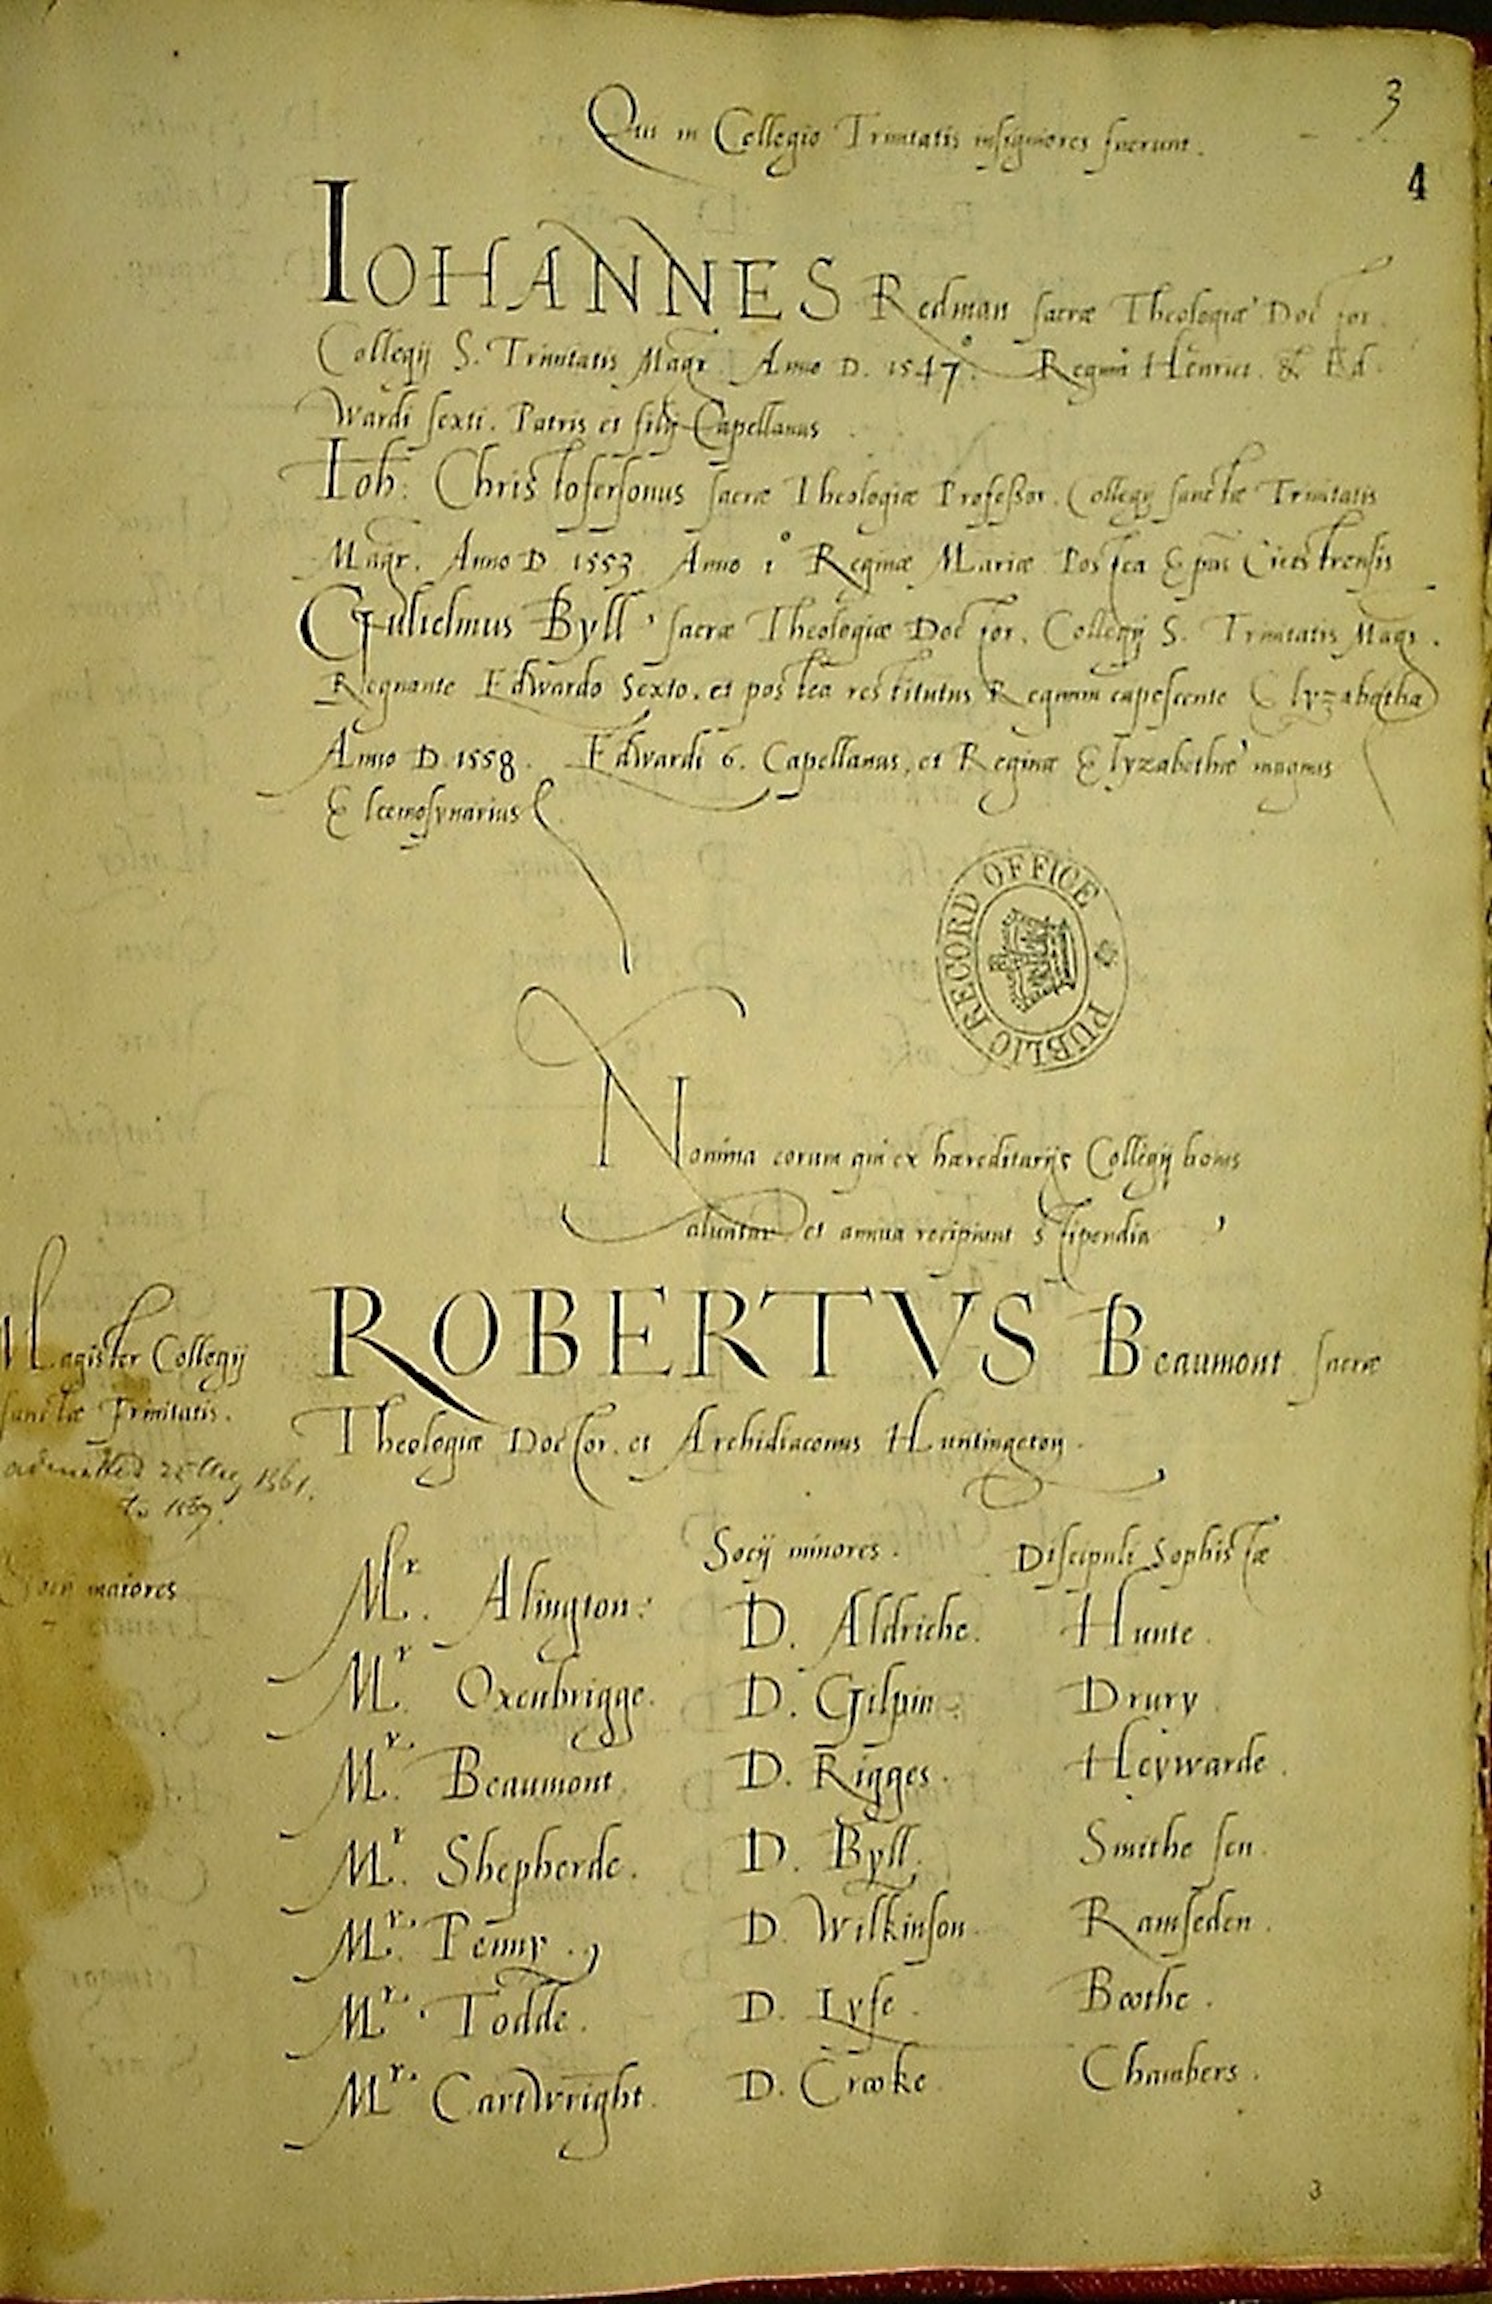 3
Qui in Collegio Trinitatis insigniores fuerunt.
4
IOHANNES Redman sacræ Theologiæ Doctor.
Collegij S. Trinitatis Magr. Anno D. 1547. Regum Henrici. & Ed
wardi sexti. Patris et filij Capellanus
Ioh: Christofersonus sacræ Theologiæ Professor. Collegij sanctæ Trinitatis
Magr. Anno D 1553. Anno 1° Reginæ Mariæ Postea Epūs Cicestrensis
Gulielmus Byll, sacræ Theologiæ Doctor. Collegij S. Trinitatis Magr.
Regnante Edwardo Sexto. et postea restitutus Regnum capescente Elyzabetha
Anno D. 1558. Edwardi 6. Capellanus, et Reginæ Elyzabethæ magnus
Eleemosynarius
PUBLIC RECORD OFFICE
Nomina eorum qui ex hæreditarijs Collegij bonis
aluntur et annua recipiunt stipendia
Magister Collegij
sanctæ Trinitatis.
admitted 25 Aug 1561.
to 1567.
ROBERTVS Beaumont sacræ
Theologiæ Doctor. et Archidiaconus Huntingeton.
Socij maiores
Mr. Alington:
Mr. Oxenbrigge.
Mr. Beaumont.
Mr. Shepherde.
Mr. Penny.
Mr. Todde.
Mr. Cartwright.
Socij minores.
D. Aldriche.
D. Gilpin.
D. Rigges.
D. Byll.
D. Wilkinson.
D. Lyfe.
D. Crooke.
Discipuli Sophistæ
Hunte.
Drury.
Heywarde.
Smithe sen.
Ramseden.
Boothe.
Chambers.
3